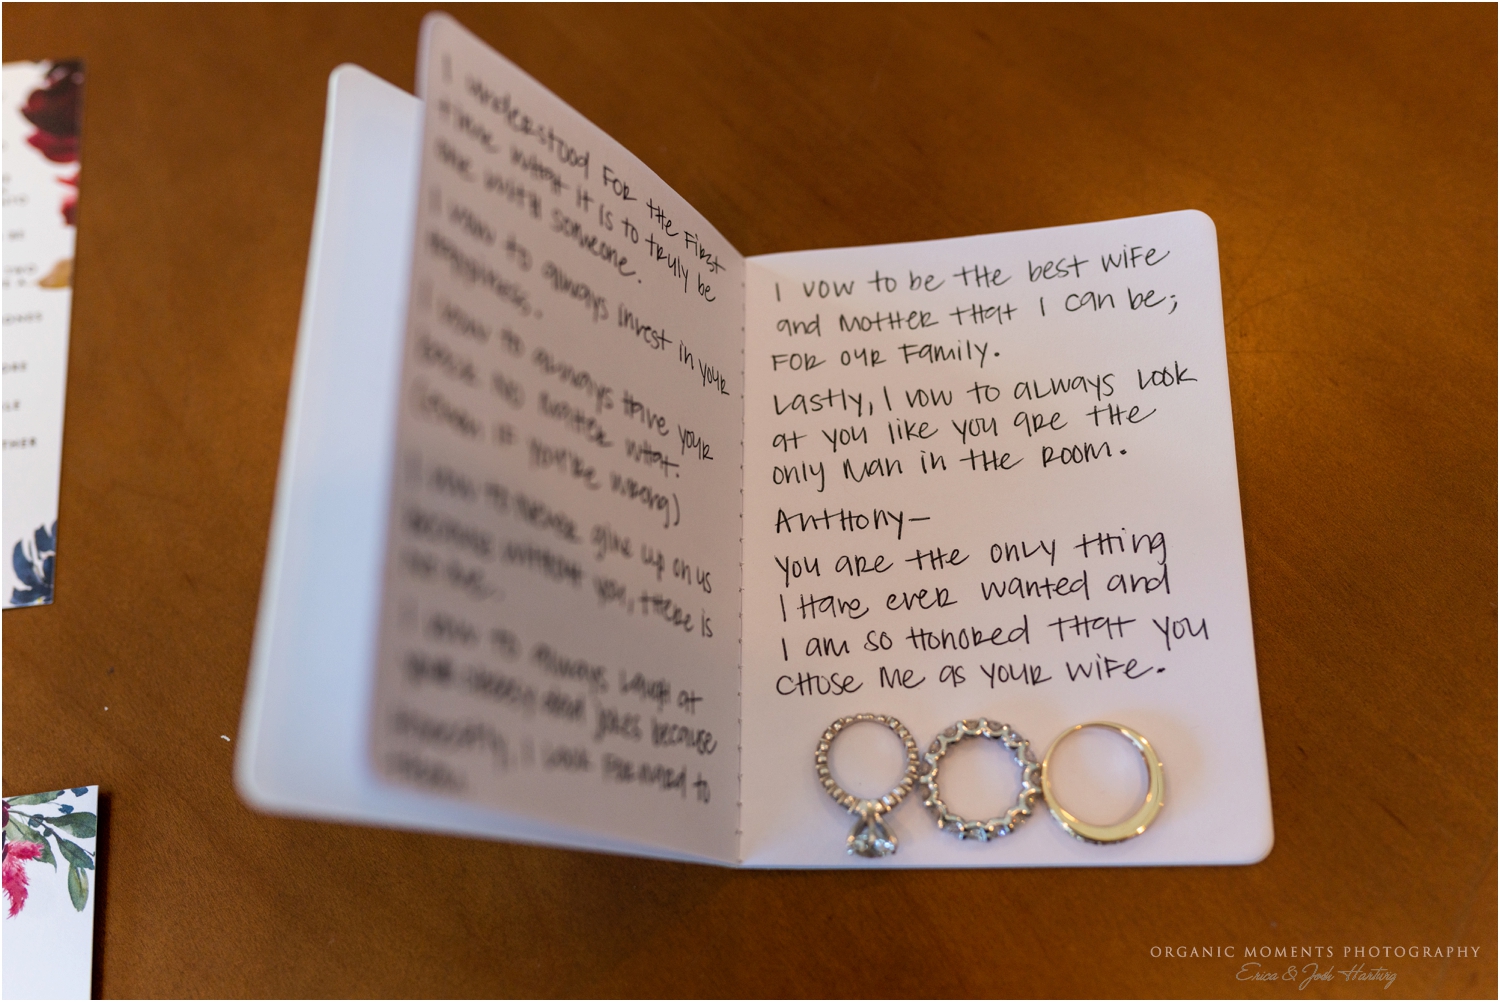 I understood for the first
time what it is to truly be
one with someone.
I vow to always invest in your
happiness.
I vow to always have your
back no matter what.
(even if you're wrong)
I vow to never give up on us
because without you, there is
no me.
I vow to always laugh at
your cheesy dad jokes because
honestly, I look forward to
them.
I vow to be the best wife
and mother that I can be;
for our family.
Lastly, I vow to always look
at you like you are the
only man in the room.
Anthony—
You are the only thing
I have ever wanted and
I am so honored that you
chose me as your wife.
ORGANIC MOMENTS PHOTOGRAPHY
Erica & Josh Hartwig